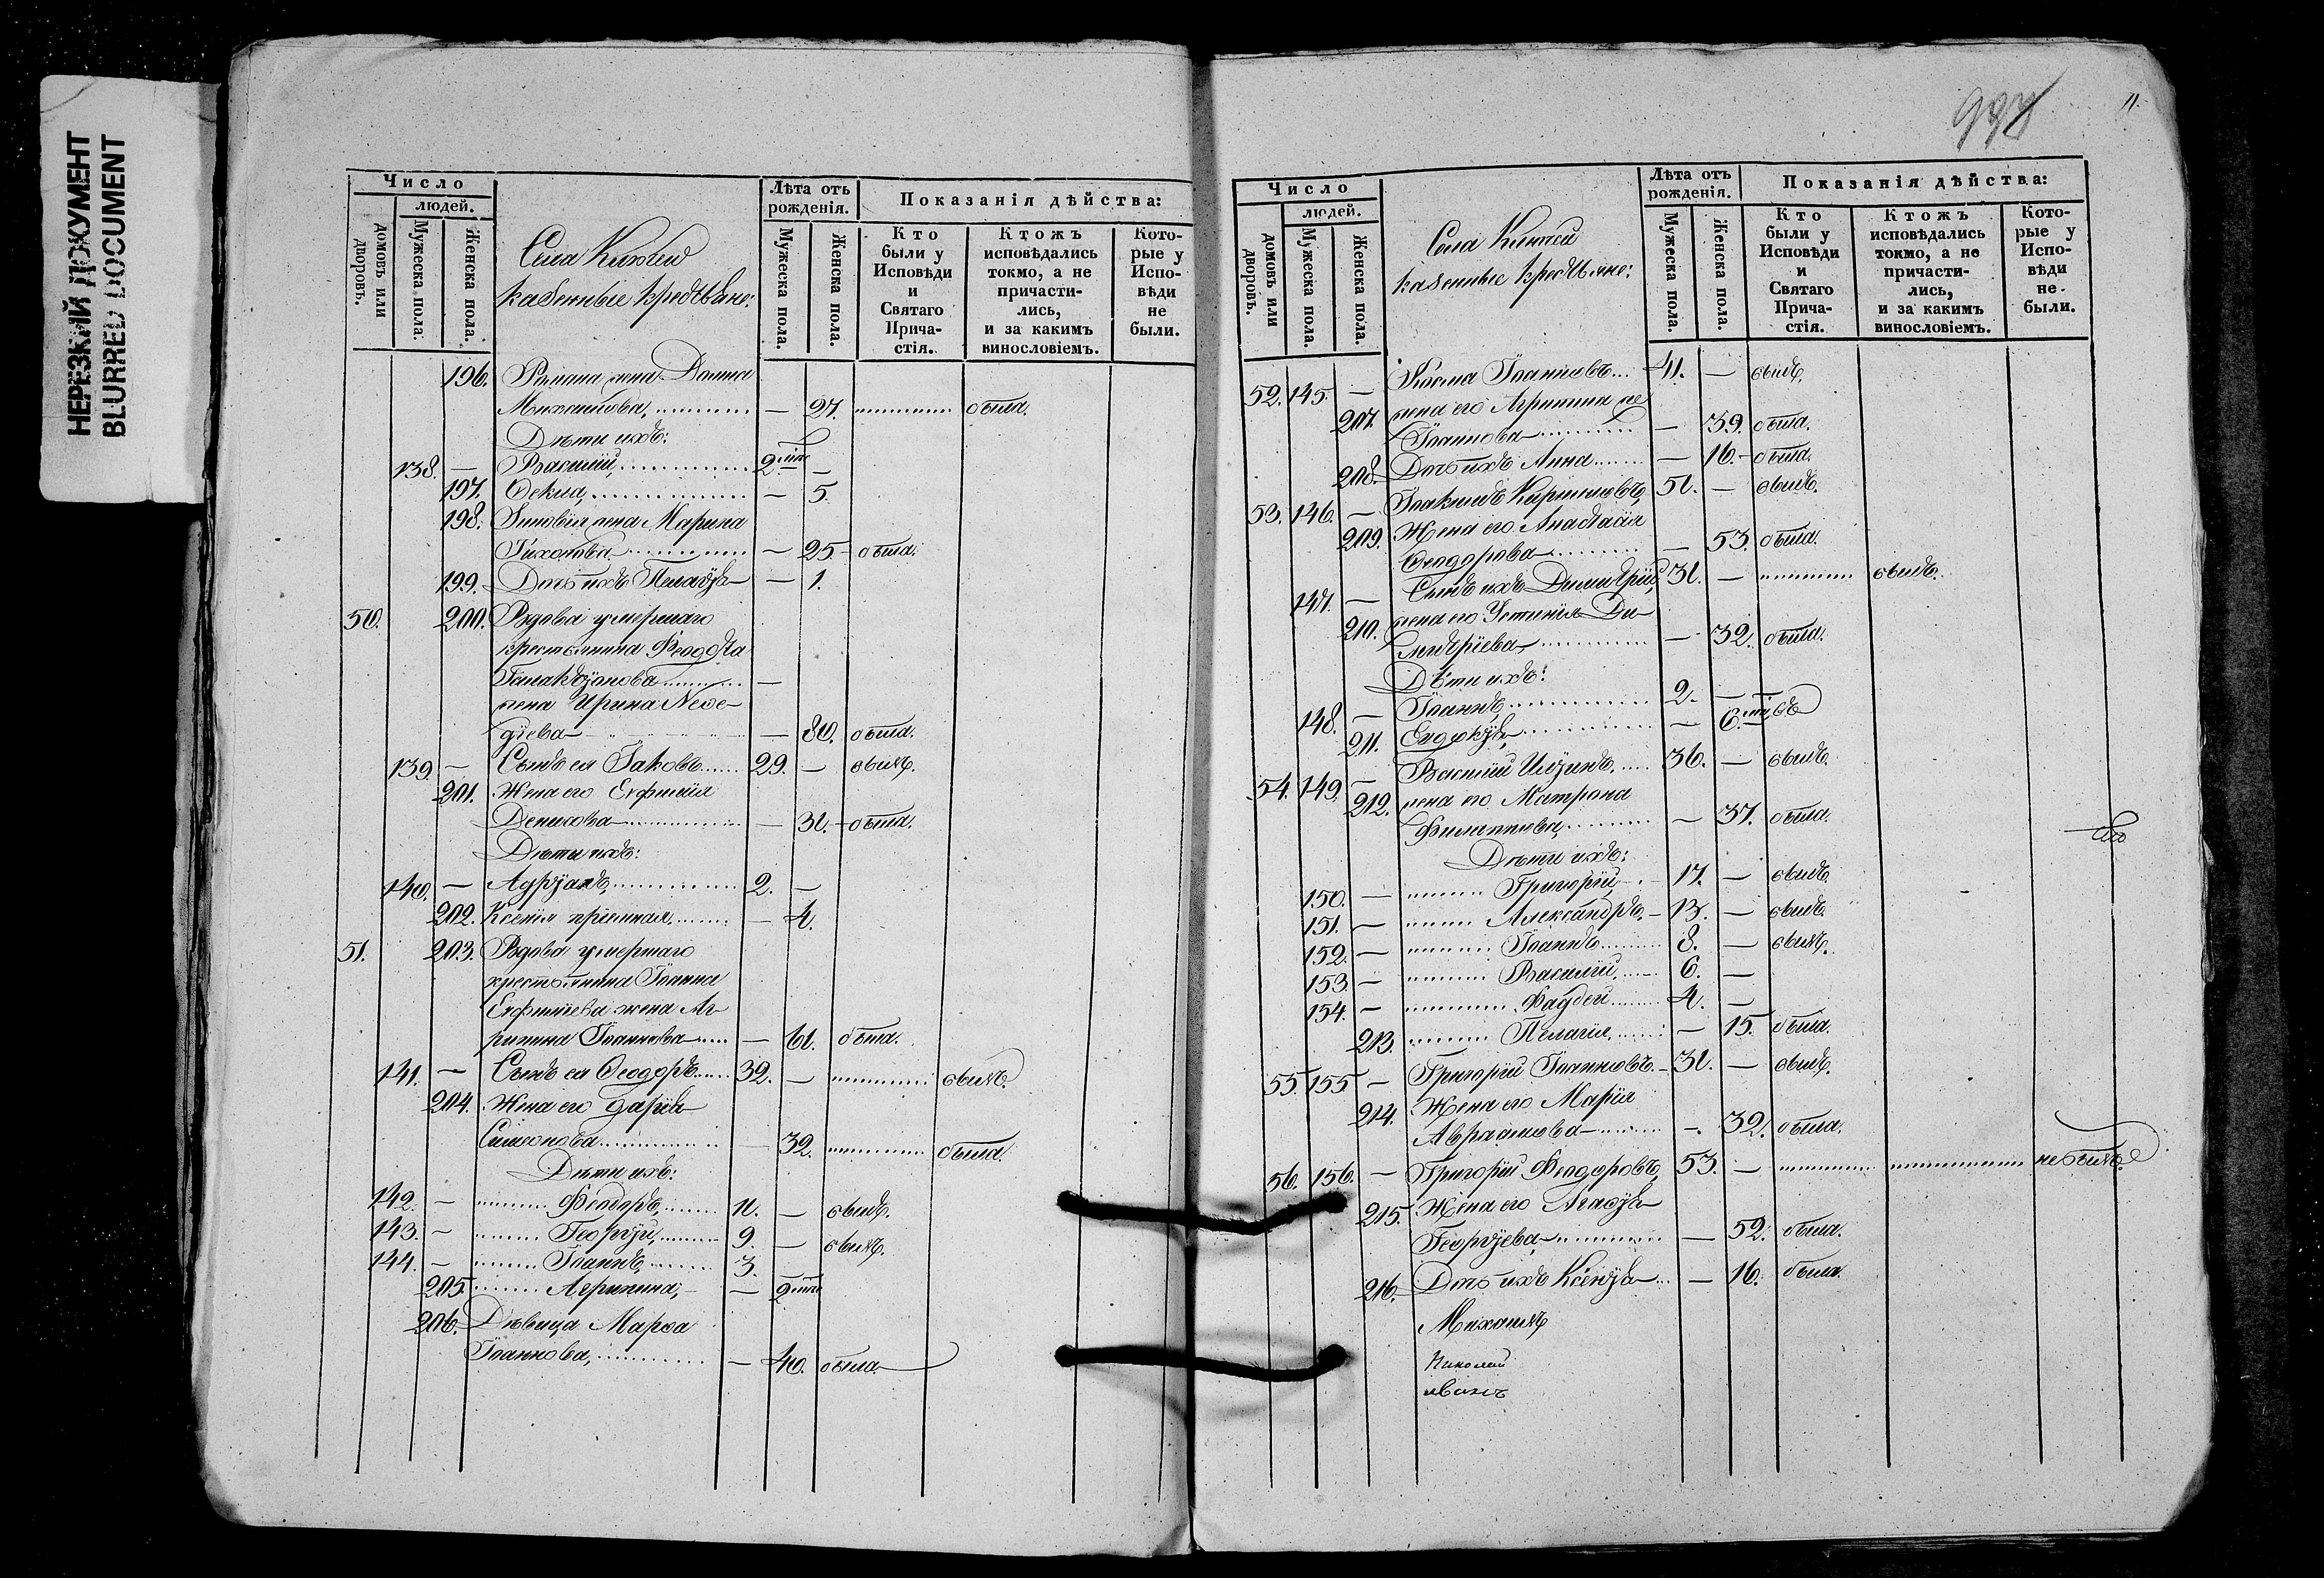 НЕРЕЗКИЙ ДОКУМЕНТ
BLURRED DOCUMENT
Число
людей.
домовъ или дворовъ.
Мужеска пола.
Женска пола.
Села
казенные крестьяне:
Лѣта отъ рожденія.
Мужеска пола.
Женска пола.
Показанія дѣйства:
Кто были у Исповѣди и Святаго Прича-стія.
Ктожъ исповѣдались токмо, а не причасти-лись, и за какимъ винословіемъ.
Кото-рые у Испо-вѣди не были.
196. Романа жена Домна
Михаилова, — 27. была.
Дѣти ихъ:
138. — Василій, 2 —
197. Ѳекла, — 5.
198. Зиновія жена Марина
Тихонова — 25 — была.
199. Дочь ихъ — 1.
50. 200. Вдова умершаго
крестьянина Ѳеодота
—
жена Ирина
— 80. была.
139. — Сынъ ея Іаковъ 29. — былъ.
201. Жена его Евфимія
Денисова — 31. — была.
Дѣти ихъ:
140. — Адріанъ, 2. —
202. Ксенія пріемная, — 4.
51. 203. Вдова умершаго
крестьянина Іоанна
Евфиміева жена Аг-
рипина Іоаннова — 61. была.
141. — Сынъ ея Ѳеодоръ 32. — былъ.
204. Жена его Дарія
Симеонова — 32. была.
Дѣти ихъ:
142. — Ѳеодоръ, 11. — былъ.
143. — Георгій, 9. — былъ.
144. — Іоаннъ, 3.
205. Агрипина, — 2
206. Дѣвица Марѳа
Іоаннова, — 40. была
11.
Число
людей.
домовъ или дворовъ.
Мужеска пола.
Женска пола.
Села
казенные крестьяне:
Лѣта отъ рожденія.
Мужеска пола.
Женска пола.
Показанія дѣйства:
Кто были у Исповѣди и Святаго Прича-стія.
Ктожъ исповѣдались токмо, а не причасти-лись, и за какимъ винословіемъ.
Кото-рые у Испо-вѣди не были.
52. 145. — Косма Іоанновъ 41. — былъ.
207. жена его Агрипина
Іоаннова — 39. была.
208. Дочь ихъ Анна — 16. — была.
53. 146. — Іоакимъ Кириловъ, 51. — былъ.
209. Жена его Анастасія
Ѳеодорова — 53. была.
147. — Сынъ ихъ Димитрій, 31. — былъ.
210. жена его Устинія Ди-
митріева, — 32. была.
Дѣти ихъ:
148. — Іоаннъ, 2. —
211. Евдокія, — 6.
54. 149. — Василій 36. — былъ.
212. жена его Матрона
Филиппова, — 37. была.
Дѣти ихъ:
150. — Григорій, 17. — былъ.
151. — Александръ, — 13. — былъ.
152. — Іоаннъ 8. — былъ.
153. — Василій, 6. —
154. — Фаддей 4. —
213. Пелагія, — 15. была.
55. 155 — Григорій Іоанновъ. — 31. — былъ.
214. Жена его Марія
Авраамова — 32. была.
56. 156. — Григорій Ѳеодоровъ, 53. — не былъ.
215. Жена его
Георгіева, — 52. была.
216. Дочь ихъ Ксенія — 16. была.
Михаилъ
Николай